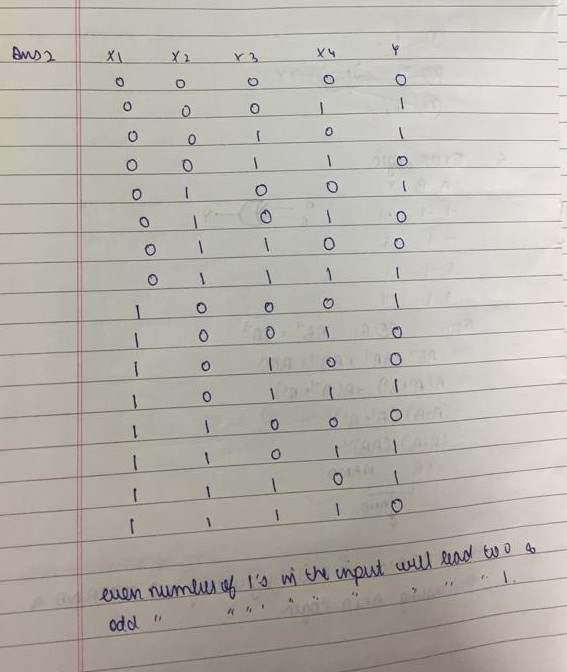 Ans 2 X1 X2 X3 X4 Y
0 0 0 0 0
0 0 0 1 1
0 0 1 0 1
0 0 1 1 0
0 1 0 0 1
0 1 0 1 0
0 1 1 0 0
0 1 1 1 1
1 0 0 0 1
1 0 0 1 0
1 0 1 0 0
1 0 1 1 1
1 1 0 0 0
1 1 0 1 1
1 1 1 0 1
1 1 1 1 0
even number of 1's in the input will lead to 0 &
odd " " " ' " " " " " " 1.